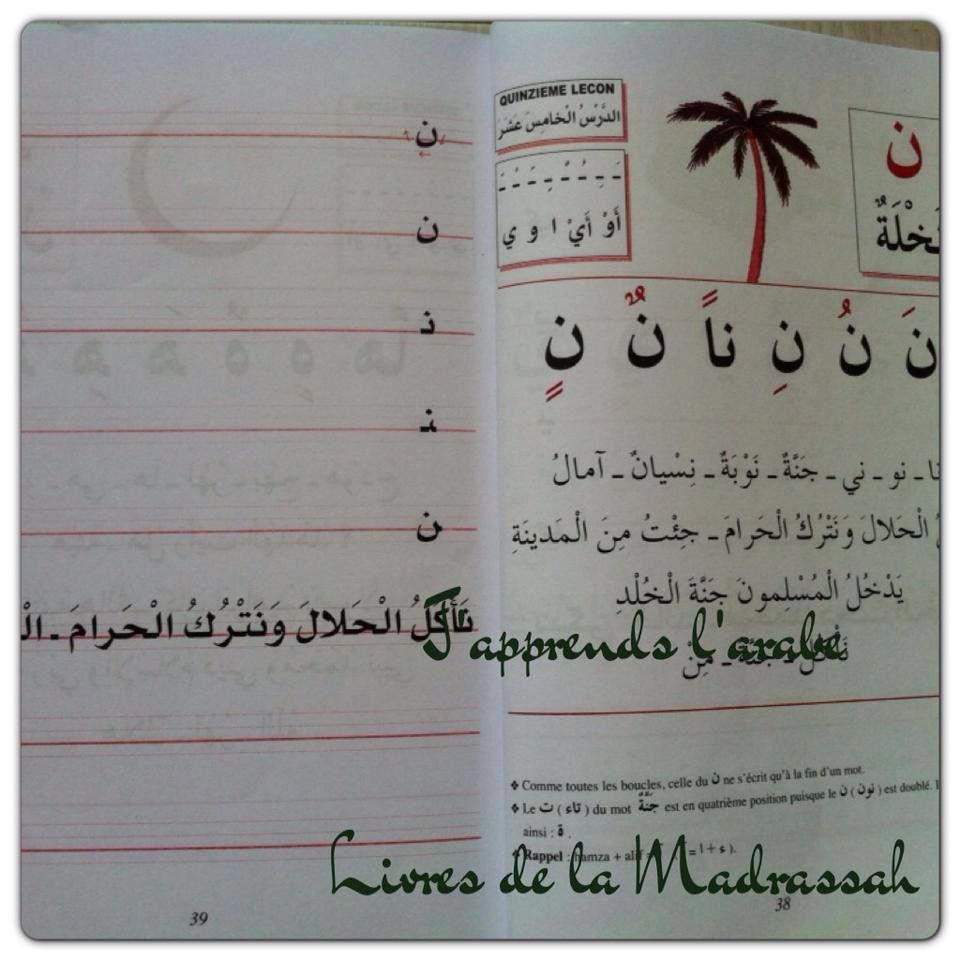 QUINZIEME LECON
الدَّرْسُ الْخامِسَ عَشَرَ
أَوْ أَيْ ا و ي
ن
نَ نُ نِ ناً نٌ نٍ
نا ـ نو ـ ني ـ جَنَّةٌ ـ نَوْبَةٌ ـ نِسْيانٌ ـ آمالُ
الْحَلالَ وَنَتْرُكُ الْحَرامَ ـ جِئْتُ مِنَ الْمَدينَةِ
يَدْخُلُ الْمُسْلِمونَ جَنَّةَ الْخُلْدِ
مِنَ
❖ Comme toutes les boucles, celle du ن ne s'écrit qu'à la fin d'un mot.
❖ Le ت (تاء) du mot جَنَّةٌ est en quatrième position puisque le ن (نون) est doublé.
ainsi : ة .
Rappel : hamza + (ء + ا =
38
ن
ن
نـ
ـنـ
ن
نَأْكُلُ الْحَلالَ وَنَتْرُكُ الْحَرامَ ـ
39
J'apprends l'arabe
Livres de la Madrassah